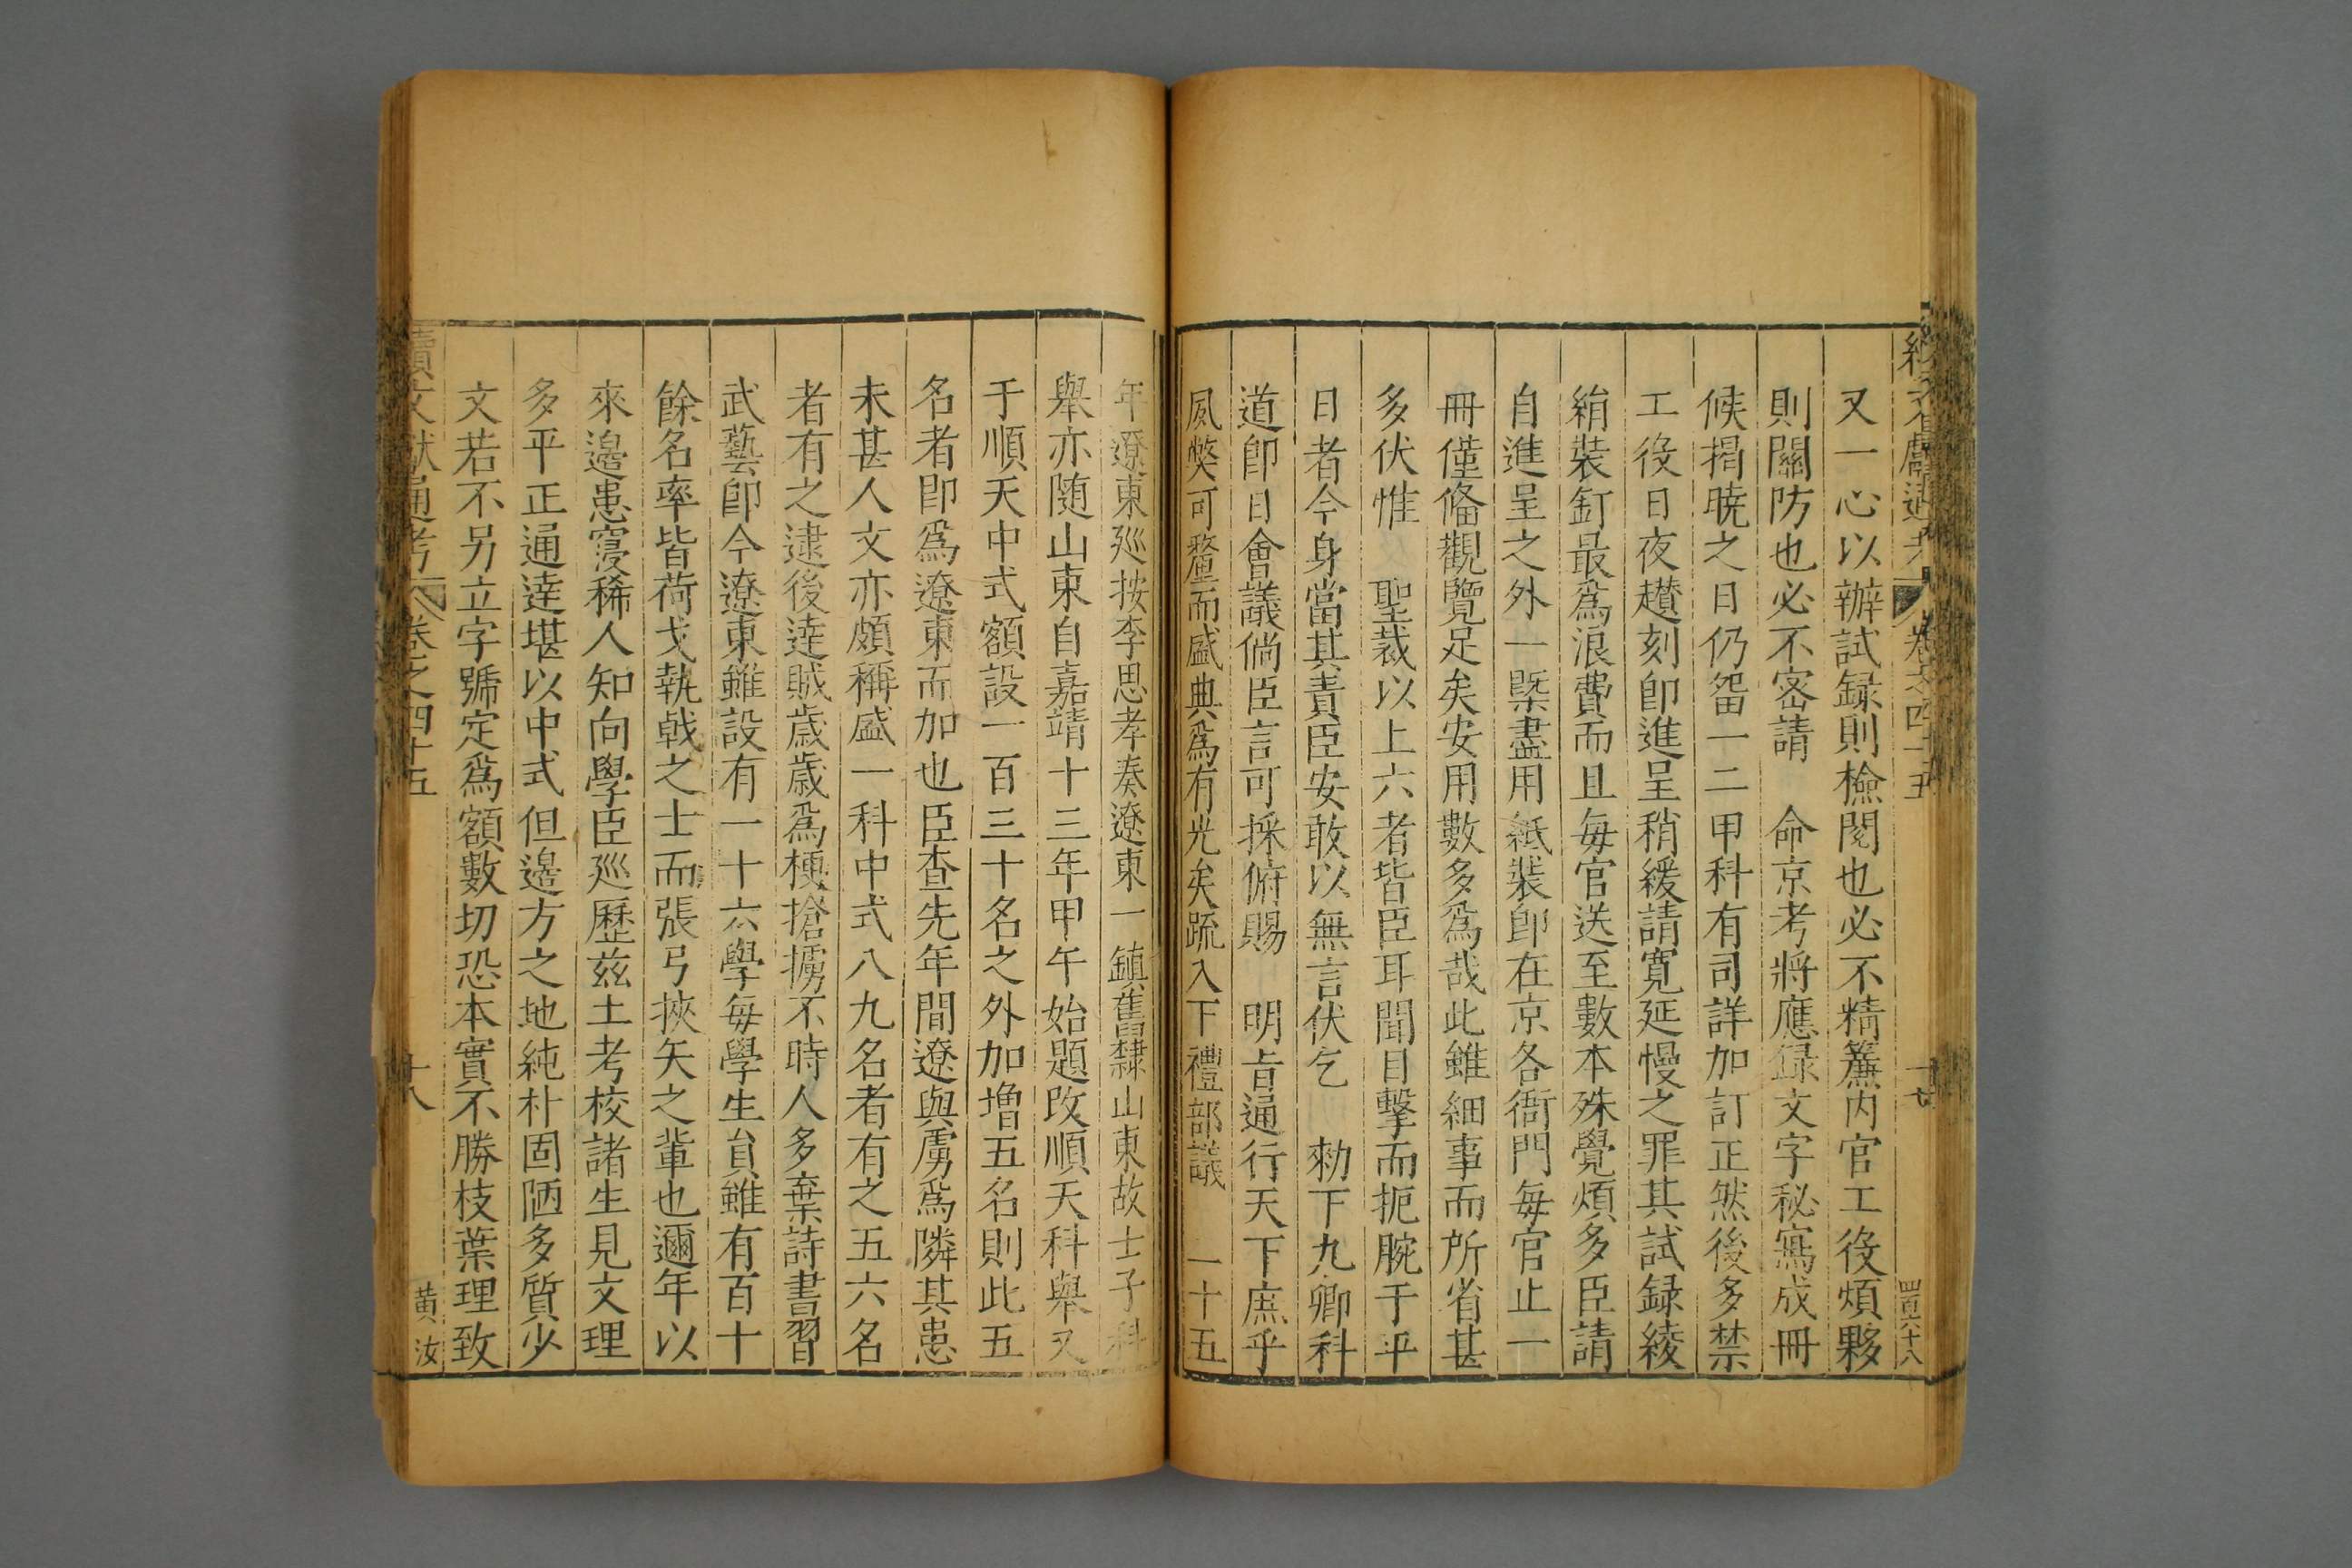 續文獻通考 卷之四十五 十七 四百六十八
又一心以辦試録則檢閱也必不精簾内官工役煩夥
則關防也必不宻請 命京考將應録文字秘寫成冊
候揭暁之日仍畱一二甲科有司詳加訂正然後多禁
工役日夜趲刻卽進呈稍緩請寛延慢之罪其試録綾
絹裝釘最爲浪費而且毎官送至數本殊覺煩多臣請
自進呈之外一槩盡用紙裝卽在京各衙門毎官止一
冊僅偹觀覽足矣安用數多爲哉此雖細事而所省甚
多伏惟 聖裁以上六者皆臣耳聞目擊而扼腕于平
日者今身當其責臣安敢以無言伏乞 勑下九卿科
道卽日會議倘臣言可採俯賜 明旨通行天下庶乎
夙獘可釐而盛典爲有光矣疏入下禮部議 一十五
年遼東廵按李思孝奏遼東一鎮舊隸山東故士子科
舉亦随山東自嘉靖十三年甲午始題改順天科舉又
于順天中式額設一百三十名之外加增五名則此五
名者卽爲遼東而加也臣查先年間遼與虜爲隣其患
未甚人文亦頗稱盛一科中式八九名者有之五六名
者有之逮後逹賊歳歳爲梗搶擄不時人多棄詩書習
武藝卽今遼東雖設有一十六學毎學生員雖有百十
餘名率皆荷戈執戟之士而張弓挾矢之輩也邇年以
來邉患寖稀人知向學臣廵歷兹土考校諸生見文理
多平正通逹堪以中式但邉方之地純朴固陋多質少
文若不另立字號定爲額數切恐本實不勝枝葉理致
續文獻通考 卷之四十五 十八 黄汝